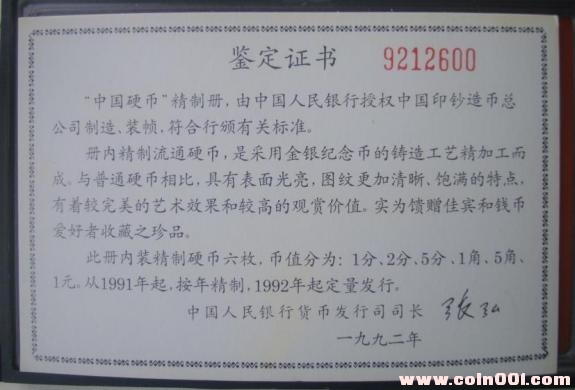 鉴定证书 9212600
“中国硬币”精制册，由中国人民银行授权中国印钞造币总
公司制造、装帧，符合行颁有关标准。
册内精制流通硬币，是采用金银纪念币的铸造工艺精加工而
成。与普通硬币相比，具有表面光亮，图纹更加清晰、饱满的特点，
有着较完美的艺术效果和较高的观赏价值。实为馈赠佳宾和钱币
爱好者收藏之珍品。
此册内装精制硬币六枚，币值分为：1分、2分、5分、1角、5角、
1元。从1991年起，按年精制，1992年起定量发行。
中国人民银行货币发行司司长 张弘
一九九二年
www.coin001.com